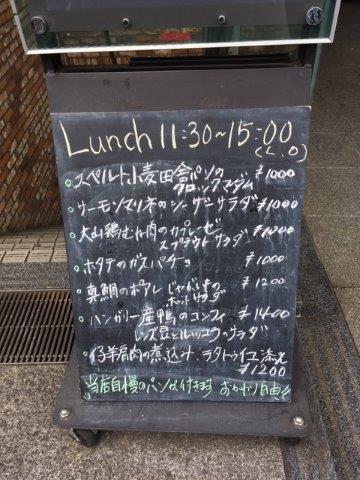 Lunch 11:30~15:00
(L.O)
・スペルト小麦田舎パンの
クロックマダム ¥1000
・サーモンマリネのシーザーサラダ ¥1000
・大山鶏むね肉のカプレーゼ
スプラウトサラダ ¥1000
・ホタテのガスパチョ ¥1000
・真鯛のポアレ じゃがいもの ¥1200
ホットサラダ
・ハンガリー産鴨のコンフィ ¥1400
レンズ豆とルッコラのサラダ
・仔羊肩肉の煮込み ラタトゥイユ添え
¥1200
当店自慢のパンが付きます おかわり自由!!